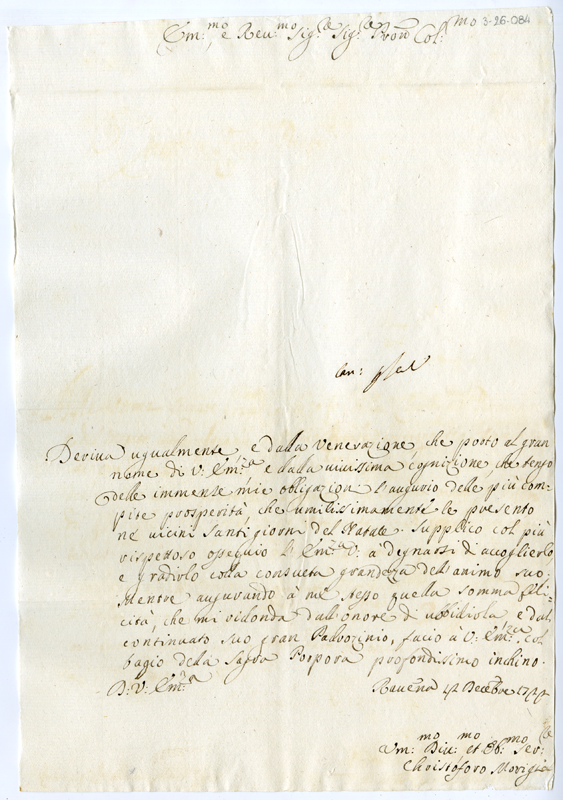 3-26-084
Em:mo e Reu:mo Sig:re Sig:re Pron Col:mo
Can:
Deriva ugualmente, e dalla Venerazione, che porto al gran
nome di V: Em:za e dalla vivissima cognizione che tengo
delle immense mie obligazioni l'augurio delle più com=
pite prosperità, che umilissimamente le presento
ne' vicini Santi giorni del Natale. Supplico col più
rispettoso ossequio l'Em:za V: à degnarsi di accoglierlo
e gradirlo colla consueta grandezza dell'animo suo;
Mentre augurando à me stesso quella somma feli=
cità, che mi ridonda dall'onore di ubbidirla e dal
continuato suo gran Padrocinio, facio à V: Em:za col
bagio della Sagra Porpora profondissimo inchino.
D: V: Em:za
Ravena Decebre
Um:mo Div:mo et Ob:mo Ser:re
Christoforo Morigia